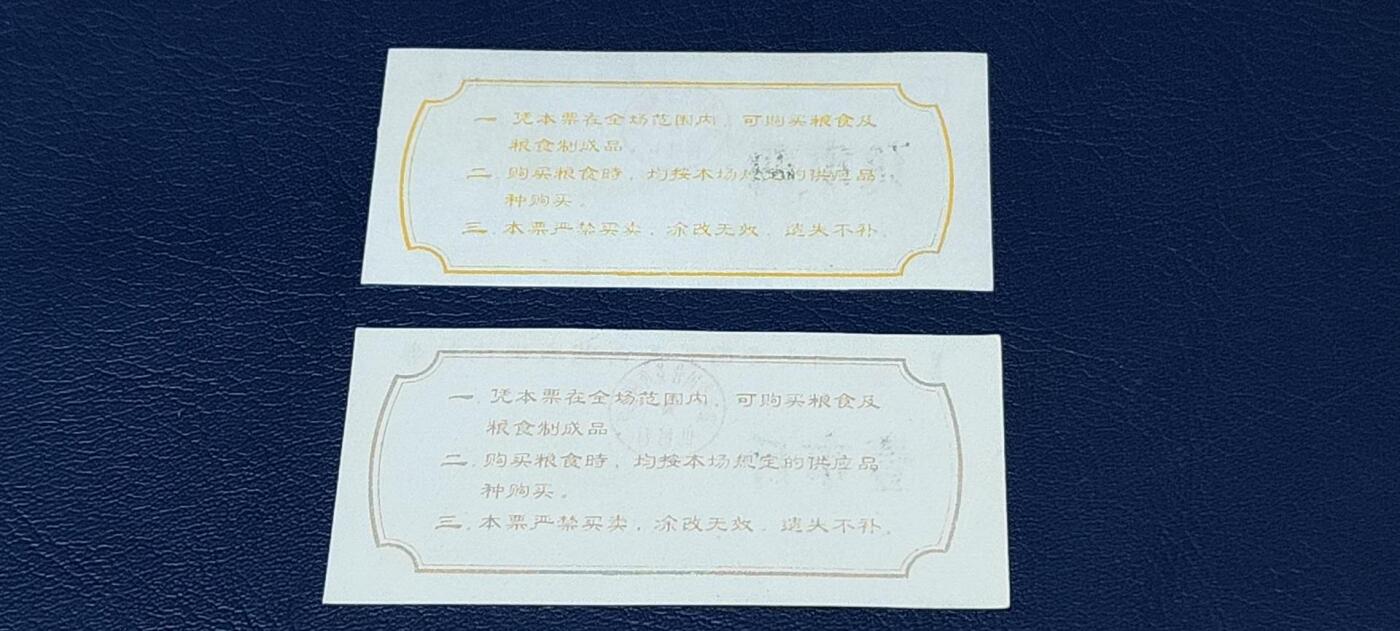 一. 凭本票在全场范围内，可购买粮食及
粮食制成品。
二. 购买粮食時，均按本场规定的供应品
种购买。
三. 本票严禁买卖，涂改无效，遗失不补。
一. 凭本票在全场范围内，可购买粮食及
粮食制成品。
二. 购买粮食時，均按本场规定的供应品
种购买。
三. 本票严禁买卖，涂改无效，遗失不补。